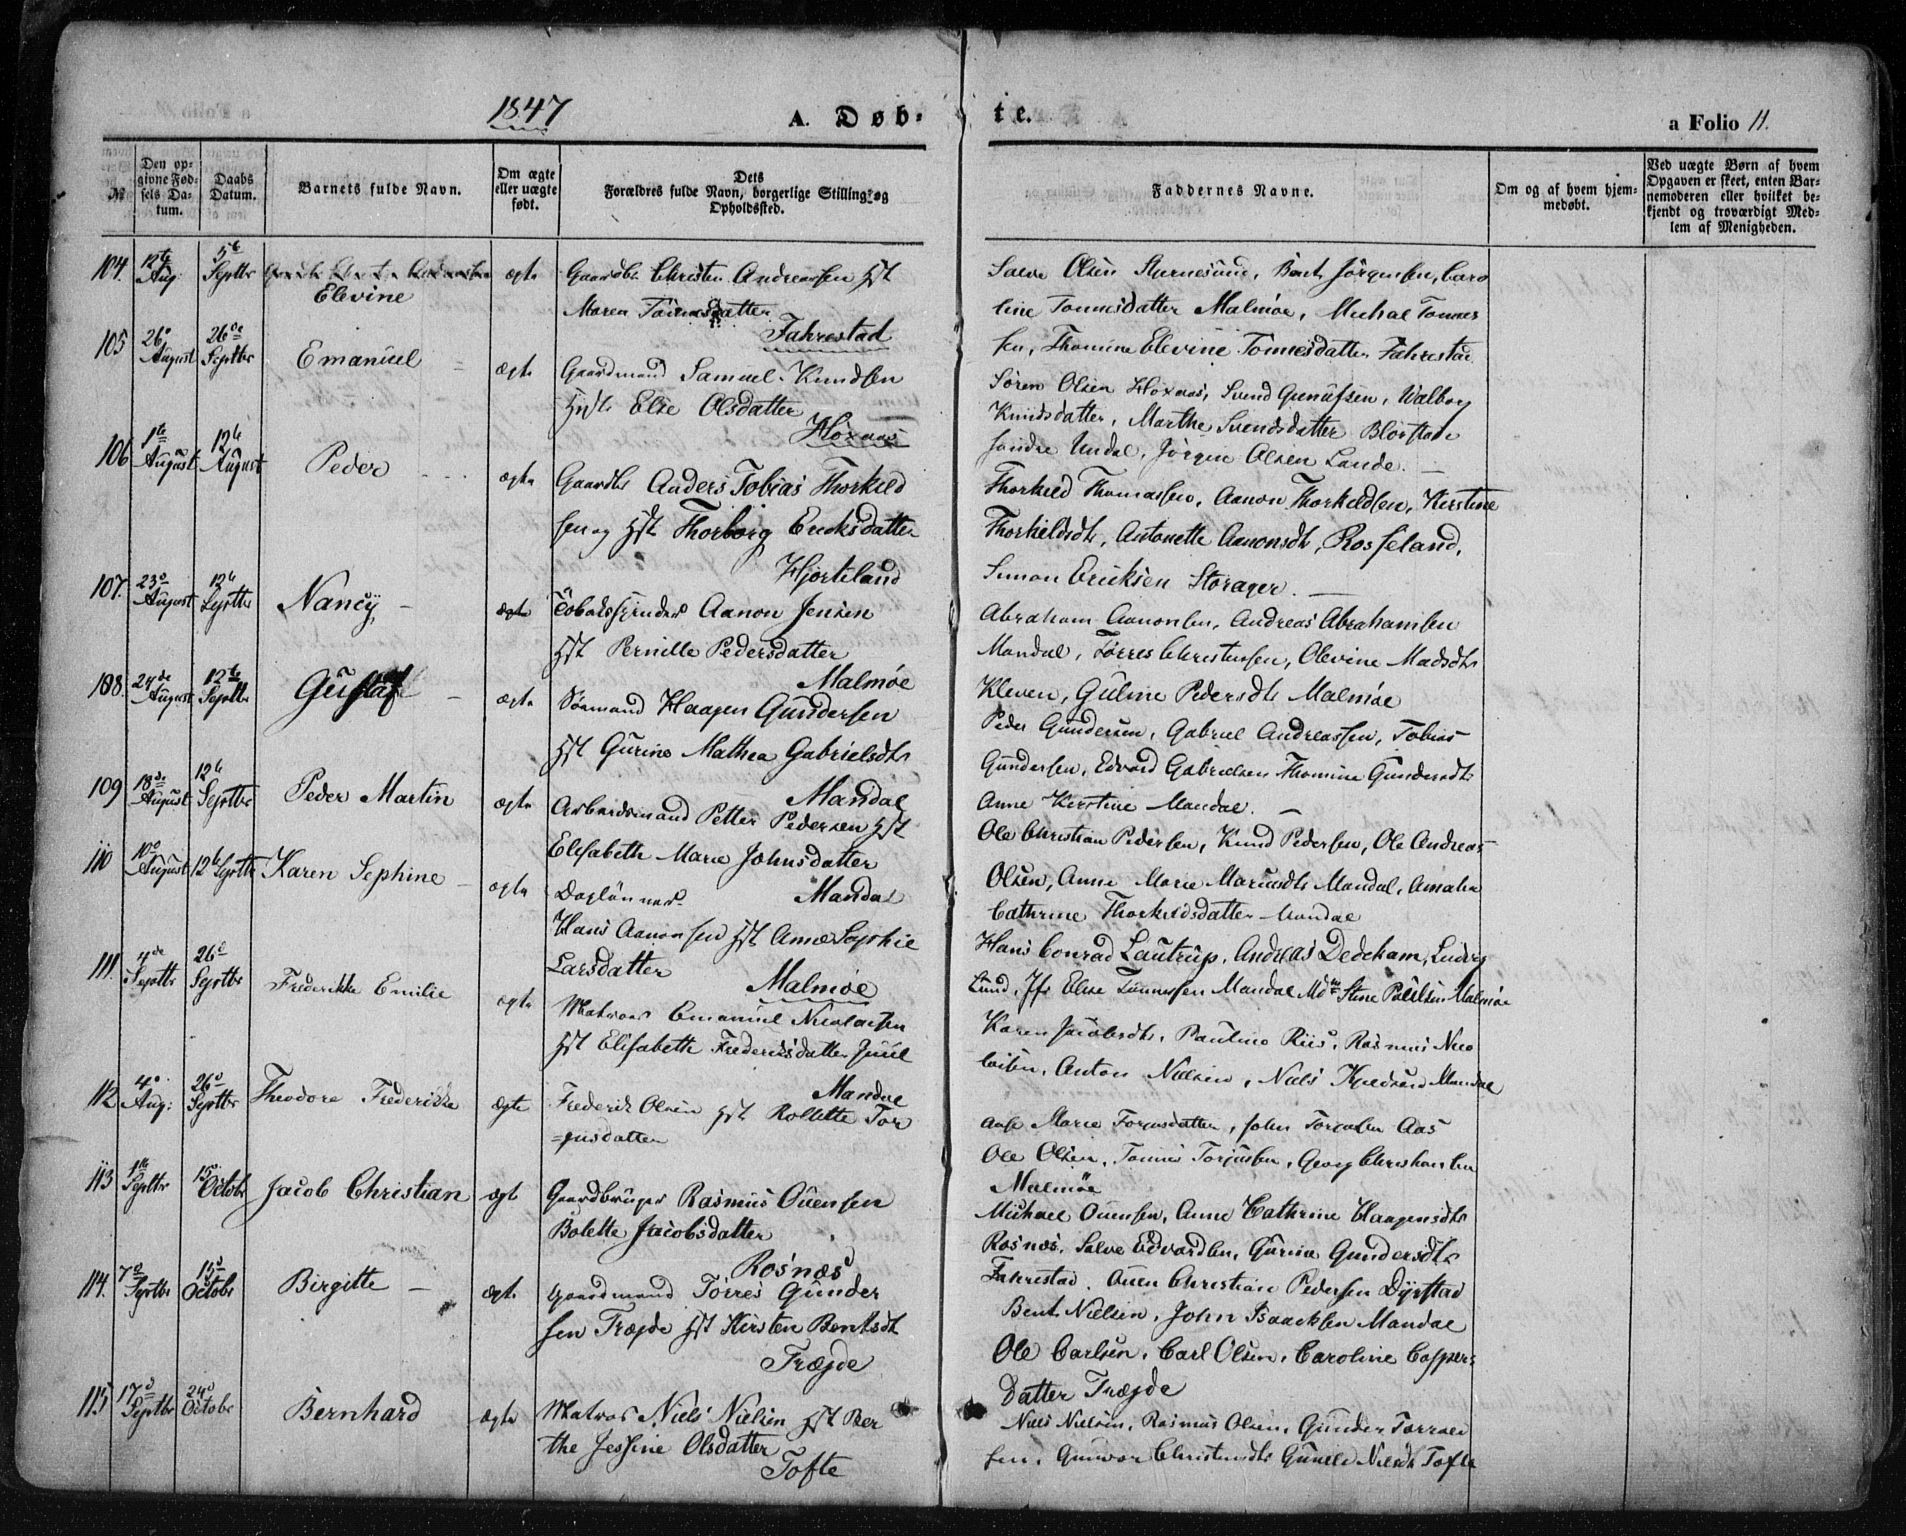 1847
A. Døb-te.
a Folio 11.
№
Den opgivne Fødsels Datum.
Daabs Datum.
Barnets fulde Navn.
Om ægte eller uægte født.
Dets Forældres fulde Navn, borgerlige Stilling og Opholdssted.
Faddernes Navne.
Om og af hvem hjemmedøbt.
Ved uægte Børn af hvem Opgaven er skeet, enten Barnemoderen eller hvilket bekjendt og troværdigt Medlem af Menigheden.
104. 12te Aug. 5te Septbr
Elevine
ægte
Gaardbr Christen Andreassen Hst
Maren Tønnesdatter
Fahrestad
Salve Olsen Bent Jørgensen, Caro
line Tønnesdatter Malmøe, Michal Tønnes
sen, Thomine Elevine Tonnesdatter Fahrestad
105 26 August 26de Septbr
Emanuel
ægte
Gaardmand Samuel Knudsen
Hst Else Olsdatter
Høxnas
Søren Olsen Høxnas, Svend Gunufsen, Walborg
Knudsdatter, Marthe Svendsdatter Blørstad
Søndre Undal, Jørgen Olsen Lande.
106 1te August 12te August
Peder
ægte
Gaardbr Anders Tobias Thorkild
sen og Hst Thorborg Ericksdatter
Hjorteland
Thorkild Thomassen, Aanon Thorkildsen, Kirstine
Thorkildsdt, Antonette Aanonsdt, Rosseland,
Simon Ericksen Storager.
107. 23d August 12te Septbr
Nancÿ
ægte
Tobaksspinder Aanon Jensen
Hst Pernille Pedersdatter
Malmøe
Abraham Aanonsen, Andreas Abrahamsen
Mandal, Tørres Christensen, Olevine Madsdt
Kleven, Guline Pedersdt Malmøe
108. 24de August 12te Septbr
Gustaf
ægte
Sømand Haagen Gundersen
Hst Gurine Mathea Gabrielsdt
Mandal
Peder Gundersen, Gabriel Andreassen, Tobias
Gundersen, Edvard Gabrielsen Thomine Gundersdt
Anne Kirstine Mandal.
109 18de August 12te Septbr
Peder Martin
ægte
Arbeidsmand Petter Pedersen Hst
Elisabeth Marie Johnsdatter
Mandal
Ole Christian Pedersen, Knud Pedersen, Ole Andreas
Olsen, Anne Marie Mandal, Amalia
Cathrine Thorkildsdatter Mandal
110 10d August 12te Septbr
Karen Sephine
ægte
Daglønner
Hans Aanonsen Hst Anne Sophie
Larsdatter
Malmøe
Hans Conrad Lautrup, Andreas Dedekam, Ludvig
Lund, Jfr Else Tønnessen Mandal Mdm Stine Poulsen Malmøe
111. 4de Septbr 26d Septbr
Frederikke Emilie
ægte
Matros Emanuel Nicolaisen
Hst Elisabeth Frederiksdatter Juul
Mandal
Karen Jacobsdt, Pauline Riis, Rasmus Nico
laisen, Anton Nielsen, Niels Mandal
112 4d Aug: 26d Septbr
Theodore Frederikke
ægte
Frederik Olsen Hst Rollette Tor
=jusdatter
Aase Marie Torjusdatter, John Torjusen Aas
Ole Olsen, Tønnes Torjussen, Georg Christiansen
Malmøe
113 1te Septbr 15d Octobr
Jacob Christian
ægte
Gaardbruger Rasmus Ouensen
Bolette Jacobsdatter
Rosnæs
Michael Ouensen, Anne Cathrine Haagensdt
Rosnæs, Salve Edvardsen, Gurine Gundersdt
Fahrestad. Ouen Christian Pedersen Dÿrstad
114. 7d Septbr 15d Octobr
Birgitte
ægte
Gaardmand Tørres Gunder
sen Træjde Hst Kirsten Bentsdt
Træjde
Bent Nielsen, John Isaacksen Mandal
Ole Carlsen, Carl Olsen, Caroline Casper-
Datter Træjde
115 17d Septbr 24d Octobr
Bernhard
ægte
Matros Niels Nielsen Hst Ber
the Jessine Olsdatter
Tofte
Niels Nielsen, Rasmus Olsen, Gunder Torkel
sen, Gunvor Christensdt Gunild Nielsdt Tofte